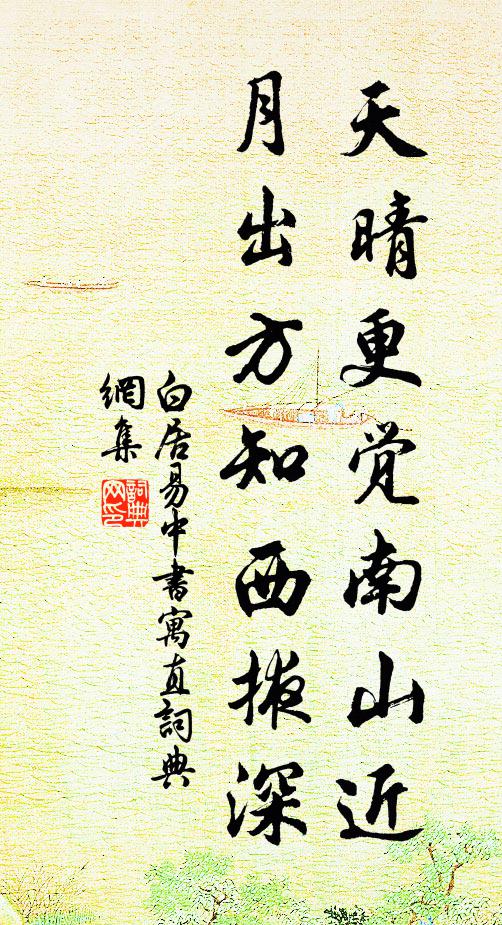 天晴更觉南山近
月出方知西掖深
白居易中書寓直詞典
網集
詞典网印